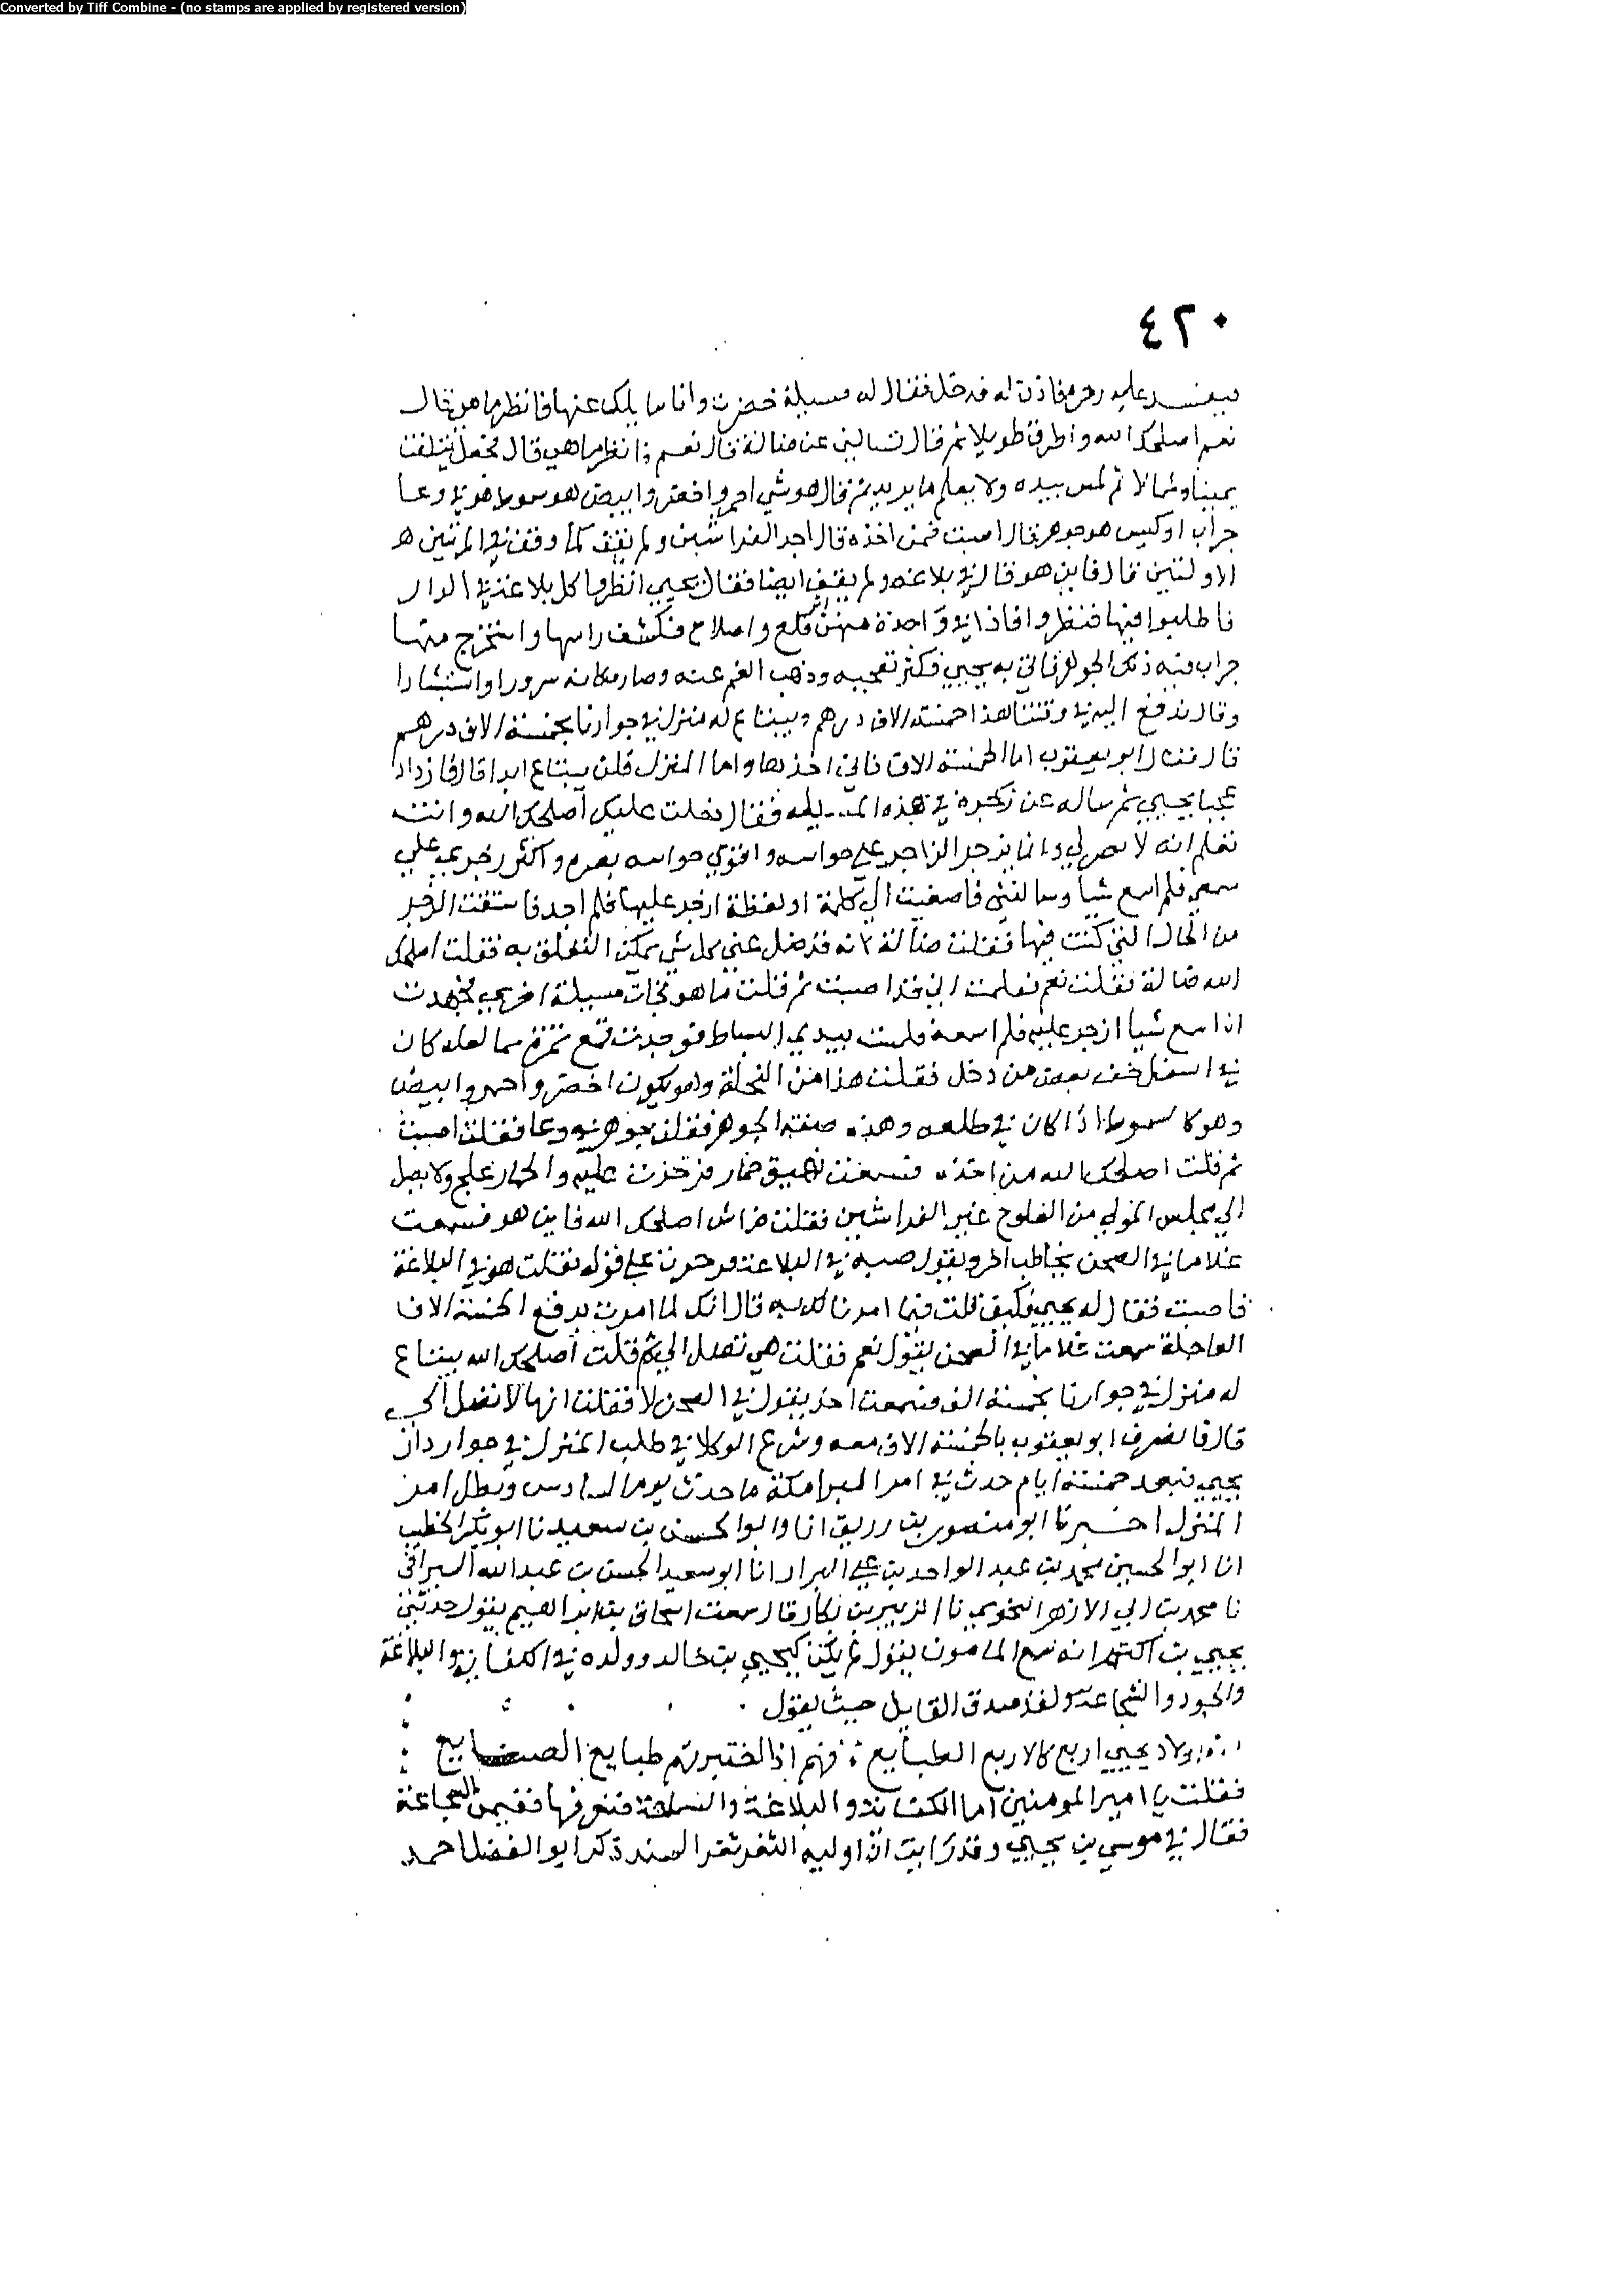 Converted by Tiff Combine - (no stamps are applied by registered version)
٤٢٠
عليه زجره فاذن له فدخل فقال له مسيلة حضرت وانا سايلك عنها فانظر ما هي قال
نعم اصلحك الله واطرق طويلا ثم قال تسالني عن ضالة قال نعم فانظر ما هي قال فجعل يتلفت
يمينا وشمالا ثم لمس بيده ولا يعلم ما يريد ثم قال هو شي احمر واخضر وابيض هو سموط هو في وعا
جراب او كيس هو جوهر قال اصبت فمن اخذه قال احد الفراشين ولم يقف كما وقف في المرتين
الاولتين قال فاين هو قال في بلاعة ولم يقف ايضا فقال يحيي انظروا كل بلاعة في الدار
فاطلبوا فيها فنظروا فاذا في واحدة منهن اثر قلع واصلاح فكشف راسها واستخرج منها
جراب فيه ذلك الجوهر فاتي به يحيي فكثر تعجبه وذهب الغم عنه وصار مكانه سرورا واستبشارا
وقال ندفع اليه في وقتنا هذا خمسة الاف درهم ويبتاع له منزل في جوارنا بخمسة الاف درهم
قال فقال ابو يعقوب اما الخمسة الاف فاني اخذها واما المنزل فلن يبتاع ابدا قال فازداد
عجبا يحيي ثم ساله عن زجره في هذه المسيلة فقال دخلت عليك اصلحك الله وانت
تعلم انه لا بصر لي وانما يزجر الزاجر علي حواسه واقوي حواسه بصره واكثر زجري علي
سمعي فلم اسمع شيا وسالتني فاصغيت الي كلمة او لفظة ازجر عليها فلم اجد فاستقت الزجر
من الحال التي كنت فيها فقلت ضالة لانه قد ضل عني كل شي يمكن التعلق به فقلت اصلحك
الله ضالة فقلت نعم فعلمت اني قد اصبت ثم قلت ما هو فجات مسيلة اخري فجهدت
ان اسمع شيا ازجر عليه فلم اسمعه فلمست بيدي البساط فوجدت قمع تمرة مما لعله كان
في اسفل خف بعض من دخل فقلت هذا من النخلة وهو يكون اخضر واحمر وابيض
وهو كالسموط اذا كان في طلعه وهذه صفة الجوهر فقلت جوهر في وعا فقلت اصبت
ثم قلت اصلحك الله من اخذه فسمعت نهيق حمار فزجرت عليه والحمار علج ولا يصل
الي مجلس المولي من العلوج غير الفراشين فقلت فراش اصلحك الله فاين هو فسمعت
غلاما في الصحن يخاطب اخر ويقول صبه في البلاعة فزجرت علي قوله فقلت هو في البلاعة
فاصبت فقال له يحيي فكيف قلت فيما امرنا لك به قال انك لما امرت بدفع الخمسة الاف
العاجلة سمعت غلاما في الصحن يقول نعم فقلت هي تصل الي ثم قلت اصلحك الله يبتاع
له منزل في جوارنا بخمسة الف فسمعت احد يقول في الصحن لا فقلت انها لا تصل الي
قال فانصرف ابو يعقوب بالخمسة الاف معه وشرع الوكلا في طلب المنزل في جوار دار
يحيي فبعد خمسة ايام حدث في امر البرامكة ما حدث يوم السادس وبطل امر
المنزل اخبرنا ابو منصور بن زريق انا وابو الحسن بن سعيد نا ابو بكر الخطيب
انا ابو الحسين محمد بن عبد الواحد بن علي البزاز انا ابو سعيد الحسن بن عبد الله السيرافي
نا محمد بن ابي الازهر النحوي نا الزبير بن بكار قال سمعت اسحاق بن ابراهيم يقول حدثني
يحيي بن اكثم انه سمع المامون يقول لم يكن كيحيي بن خالد وولده في الكفاية والبلاغة
والجود والشجاعة ولقد صدق القايل حيث يقول
اولاد يحيي اربع كالاربع الطبايع ؛ فهم اذا اختبرتهم طبايع الصنايع
فقلت يا امير المومنين اما الكفاية والبلاغة والسماحة فنعرفها ففيمن الشجاعة
فقال في موسي بن يحيي وقد رايت ان اوليه الثغر ثغر السند ذكر ابو الفضل احمد